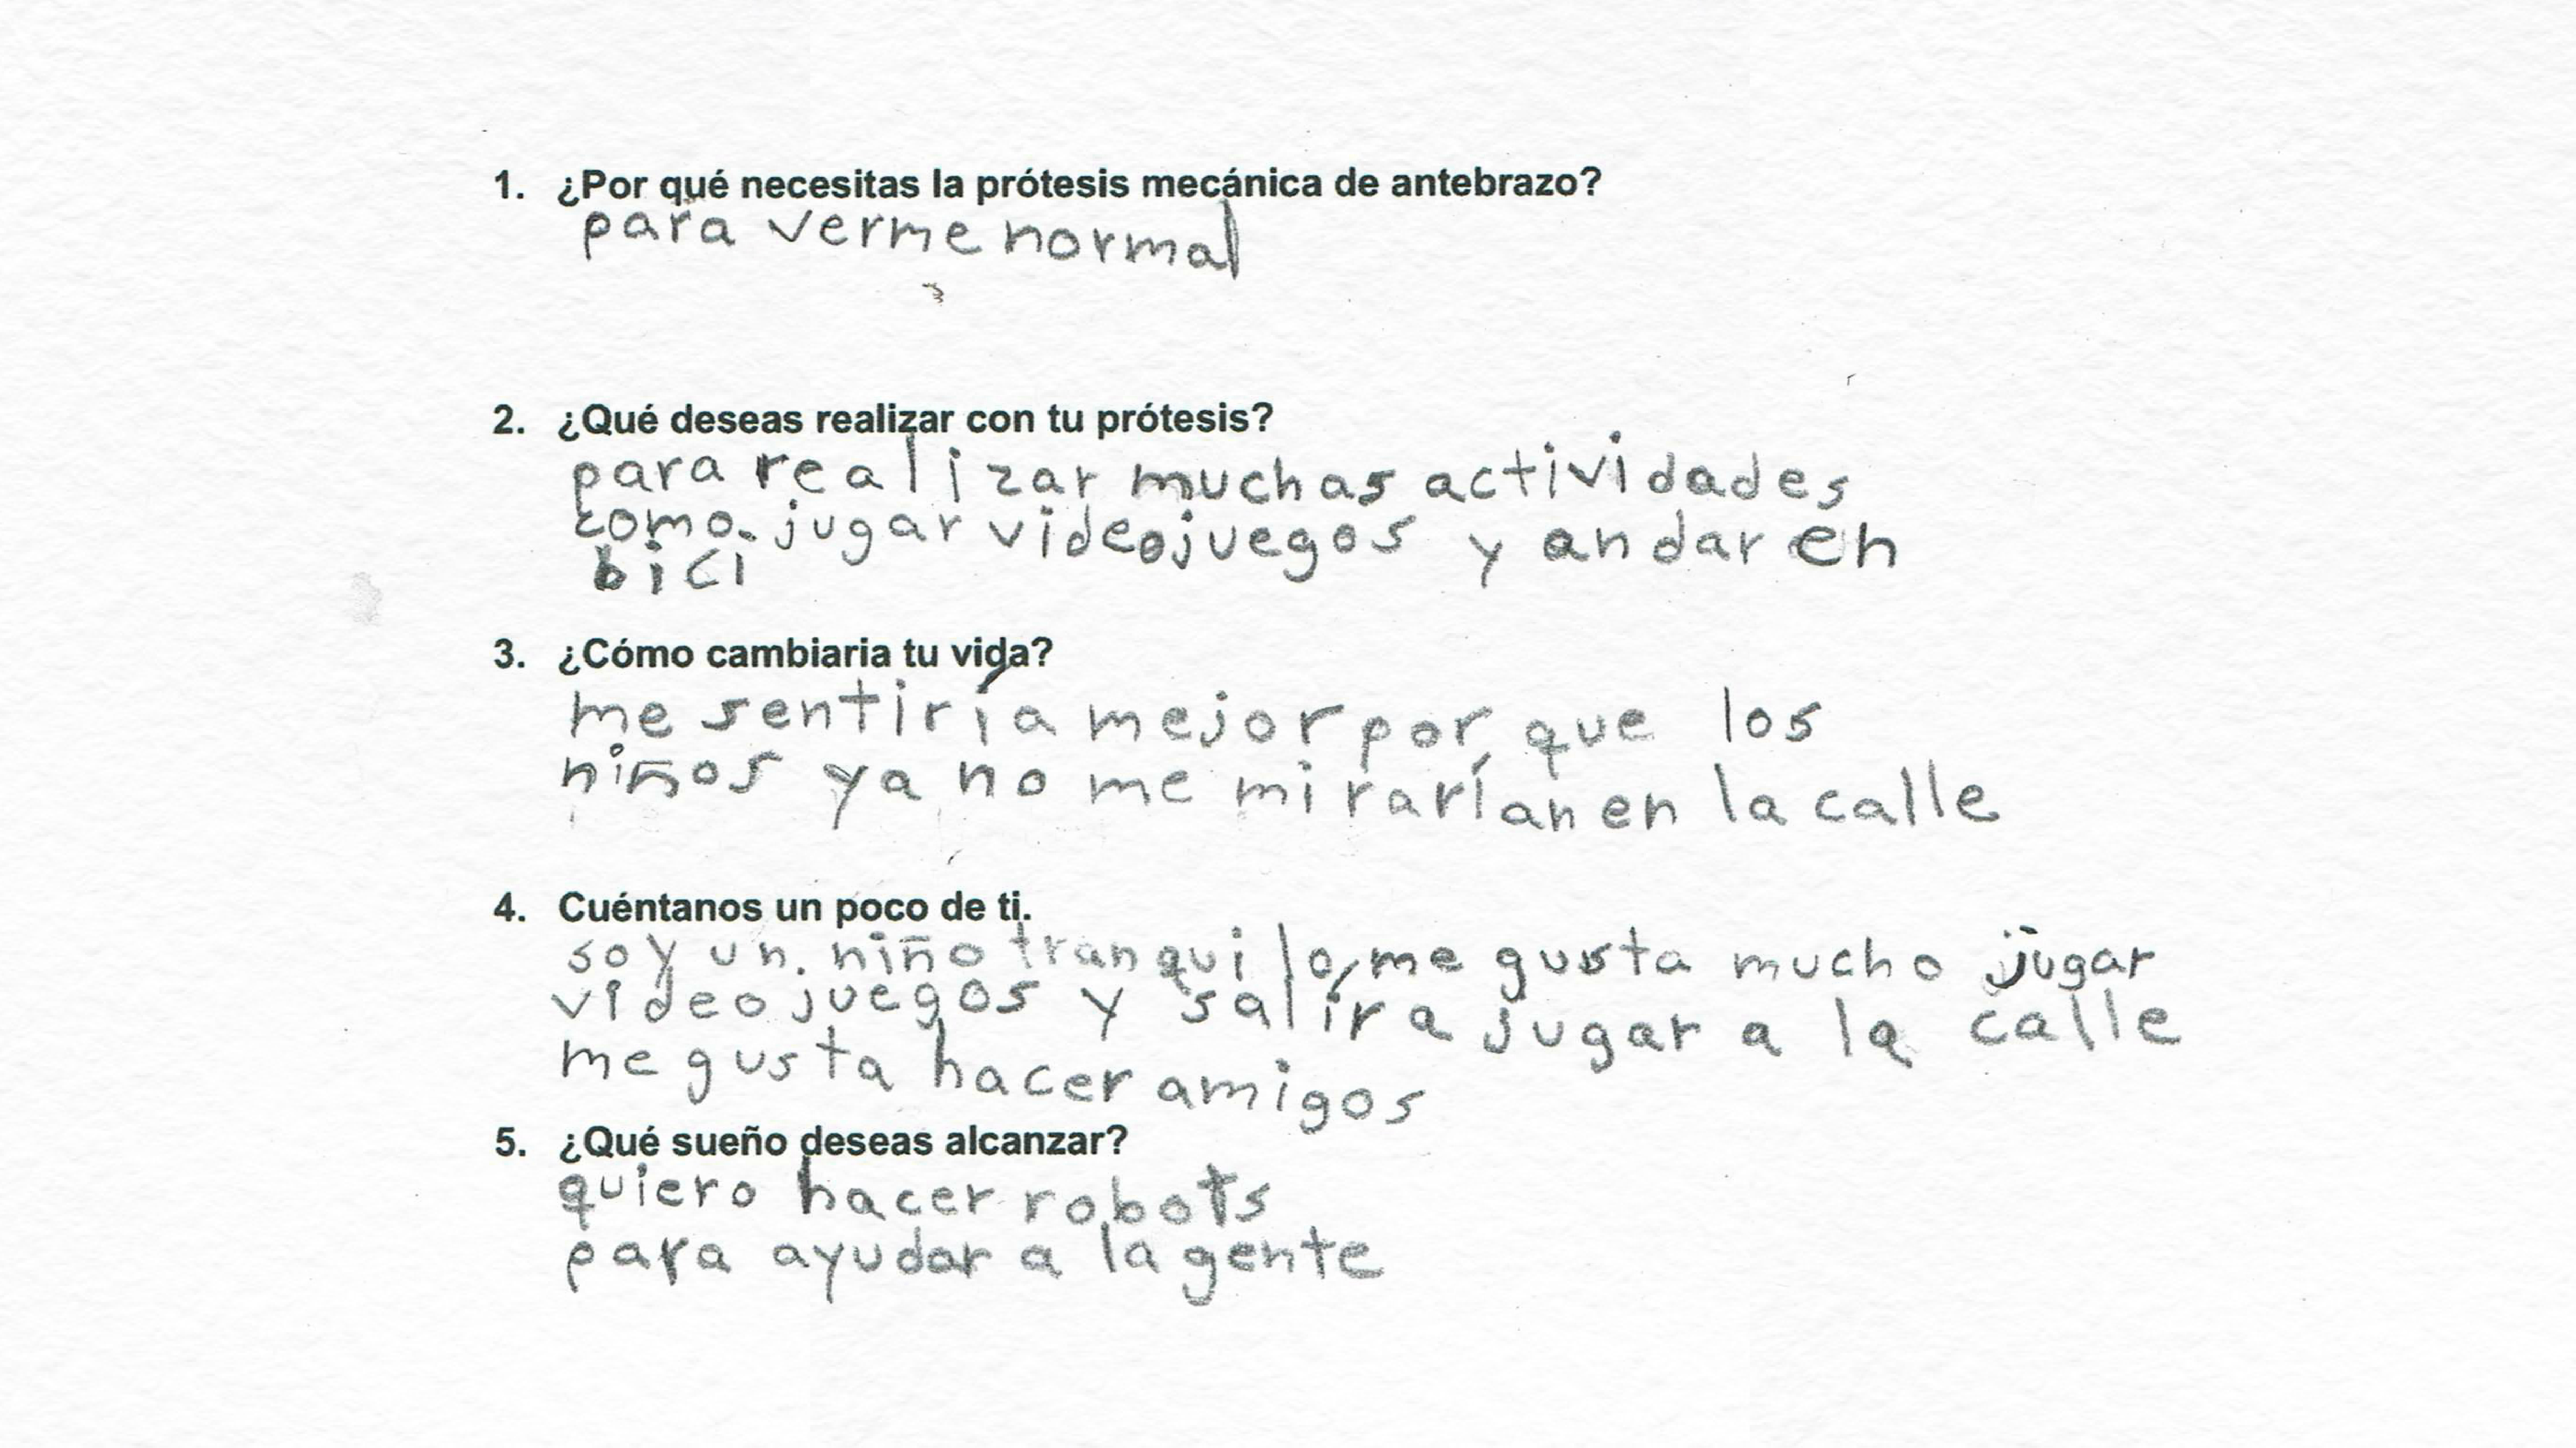 1. ¿Por qué necesitas la prótesis mecánica de antebrazo?
para verme normal
2. ¿Qué deseas realizar con tu prótesis?
para realizar muchas actividades
como jugar videojuegos y andar en
bici
3. ¿Cómo cambiaria tu vida?
me sentiría mejor por que los
niños ya no me mirarían en la calle
4. Cuéntanos un poco de ti.
soy un niño tranquilo, me gusta mucho jugar
videojuegos y salir a jugar a la calle
me gusta hacer amigos
5. ¿Qué sueño deseas alcanzar?
quiero hacer robots
para ayudar a la gente